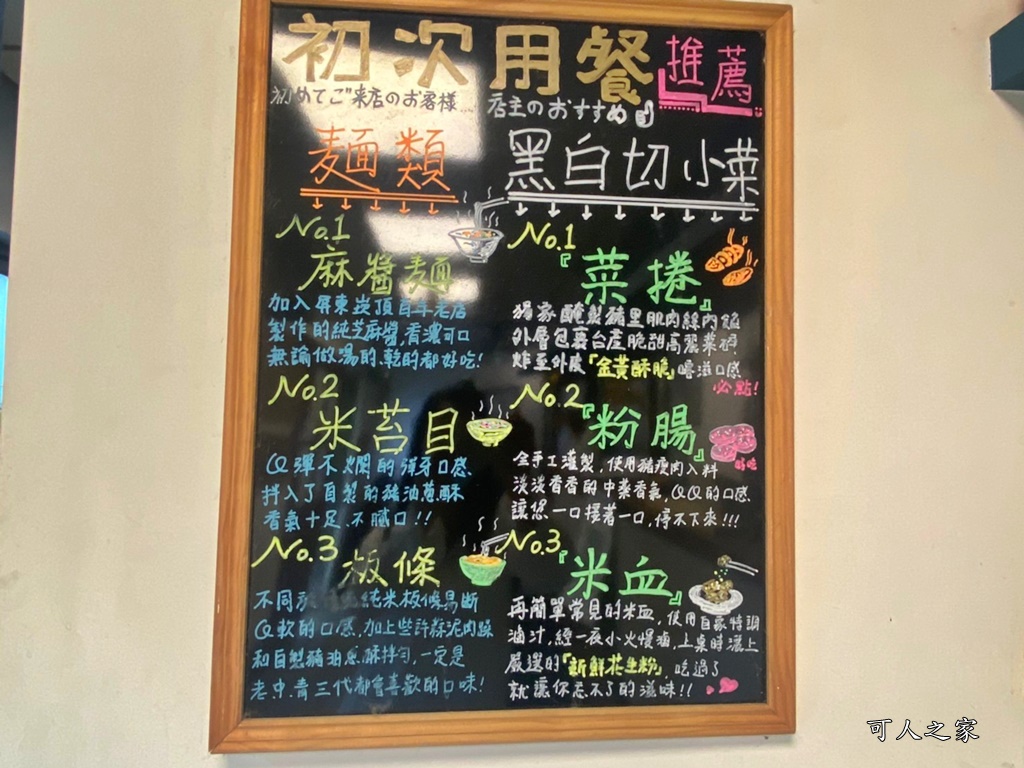 初次用餐 推薦
初めてご来店のお客様… 店主のおすすめ
麵類
No.1
麻醬麵
加入屏東崁頂百年老店
製作的純芝麻醬,香濃可口
無論做湯的、乾的都好吃!
No.2
米苔目
QQ彈不爛的彈牙口感、
拌入了自製的豬油蔥酥
香氣十足、不膩口!!
No.3
板條
不同於 純米板條易斷
Q軟的口感,加上些許蒜泥肉燥
和自製豬油蔥酥拌勻,一定是
老中、青三代都會喜歡的口味!
黑白切小菜
No.1
『菜捲』
獨家醃製豬里肌肉絲內餡
外層包裹台產脆甜高麗菜
炸至外皮「金黃酥脆」 口感
必點!
No.2
『粉腸』
全手工灌製,使用豬瘦肉入料
淡淡香香的中藥香氣,QQ的口感
讓您一口接著一口,停不下來!!!
No.3
『米血』
再簡單常見的米血,使用自家特調
滷汁,經一夜小火慢滷,上桌時灑上
嚴選的「新鮮花生粉」,吃過了
就讓你忘不了的滋味!!
可人之家